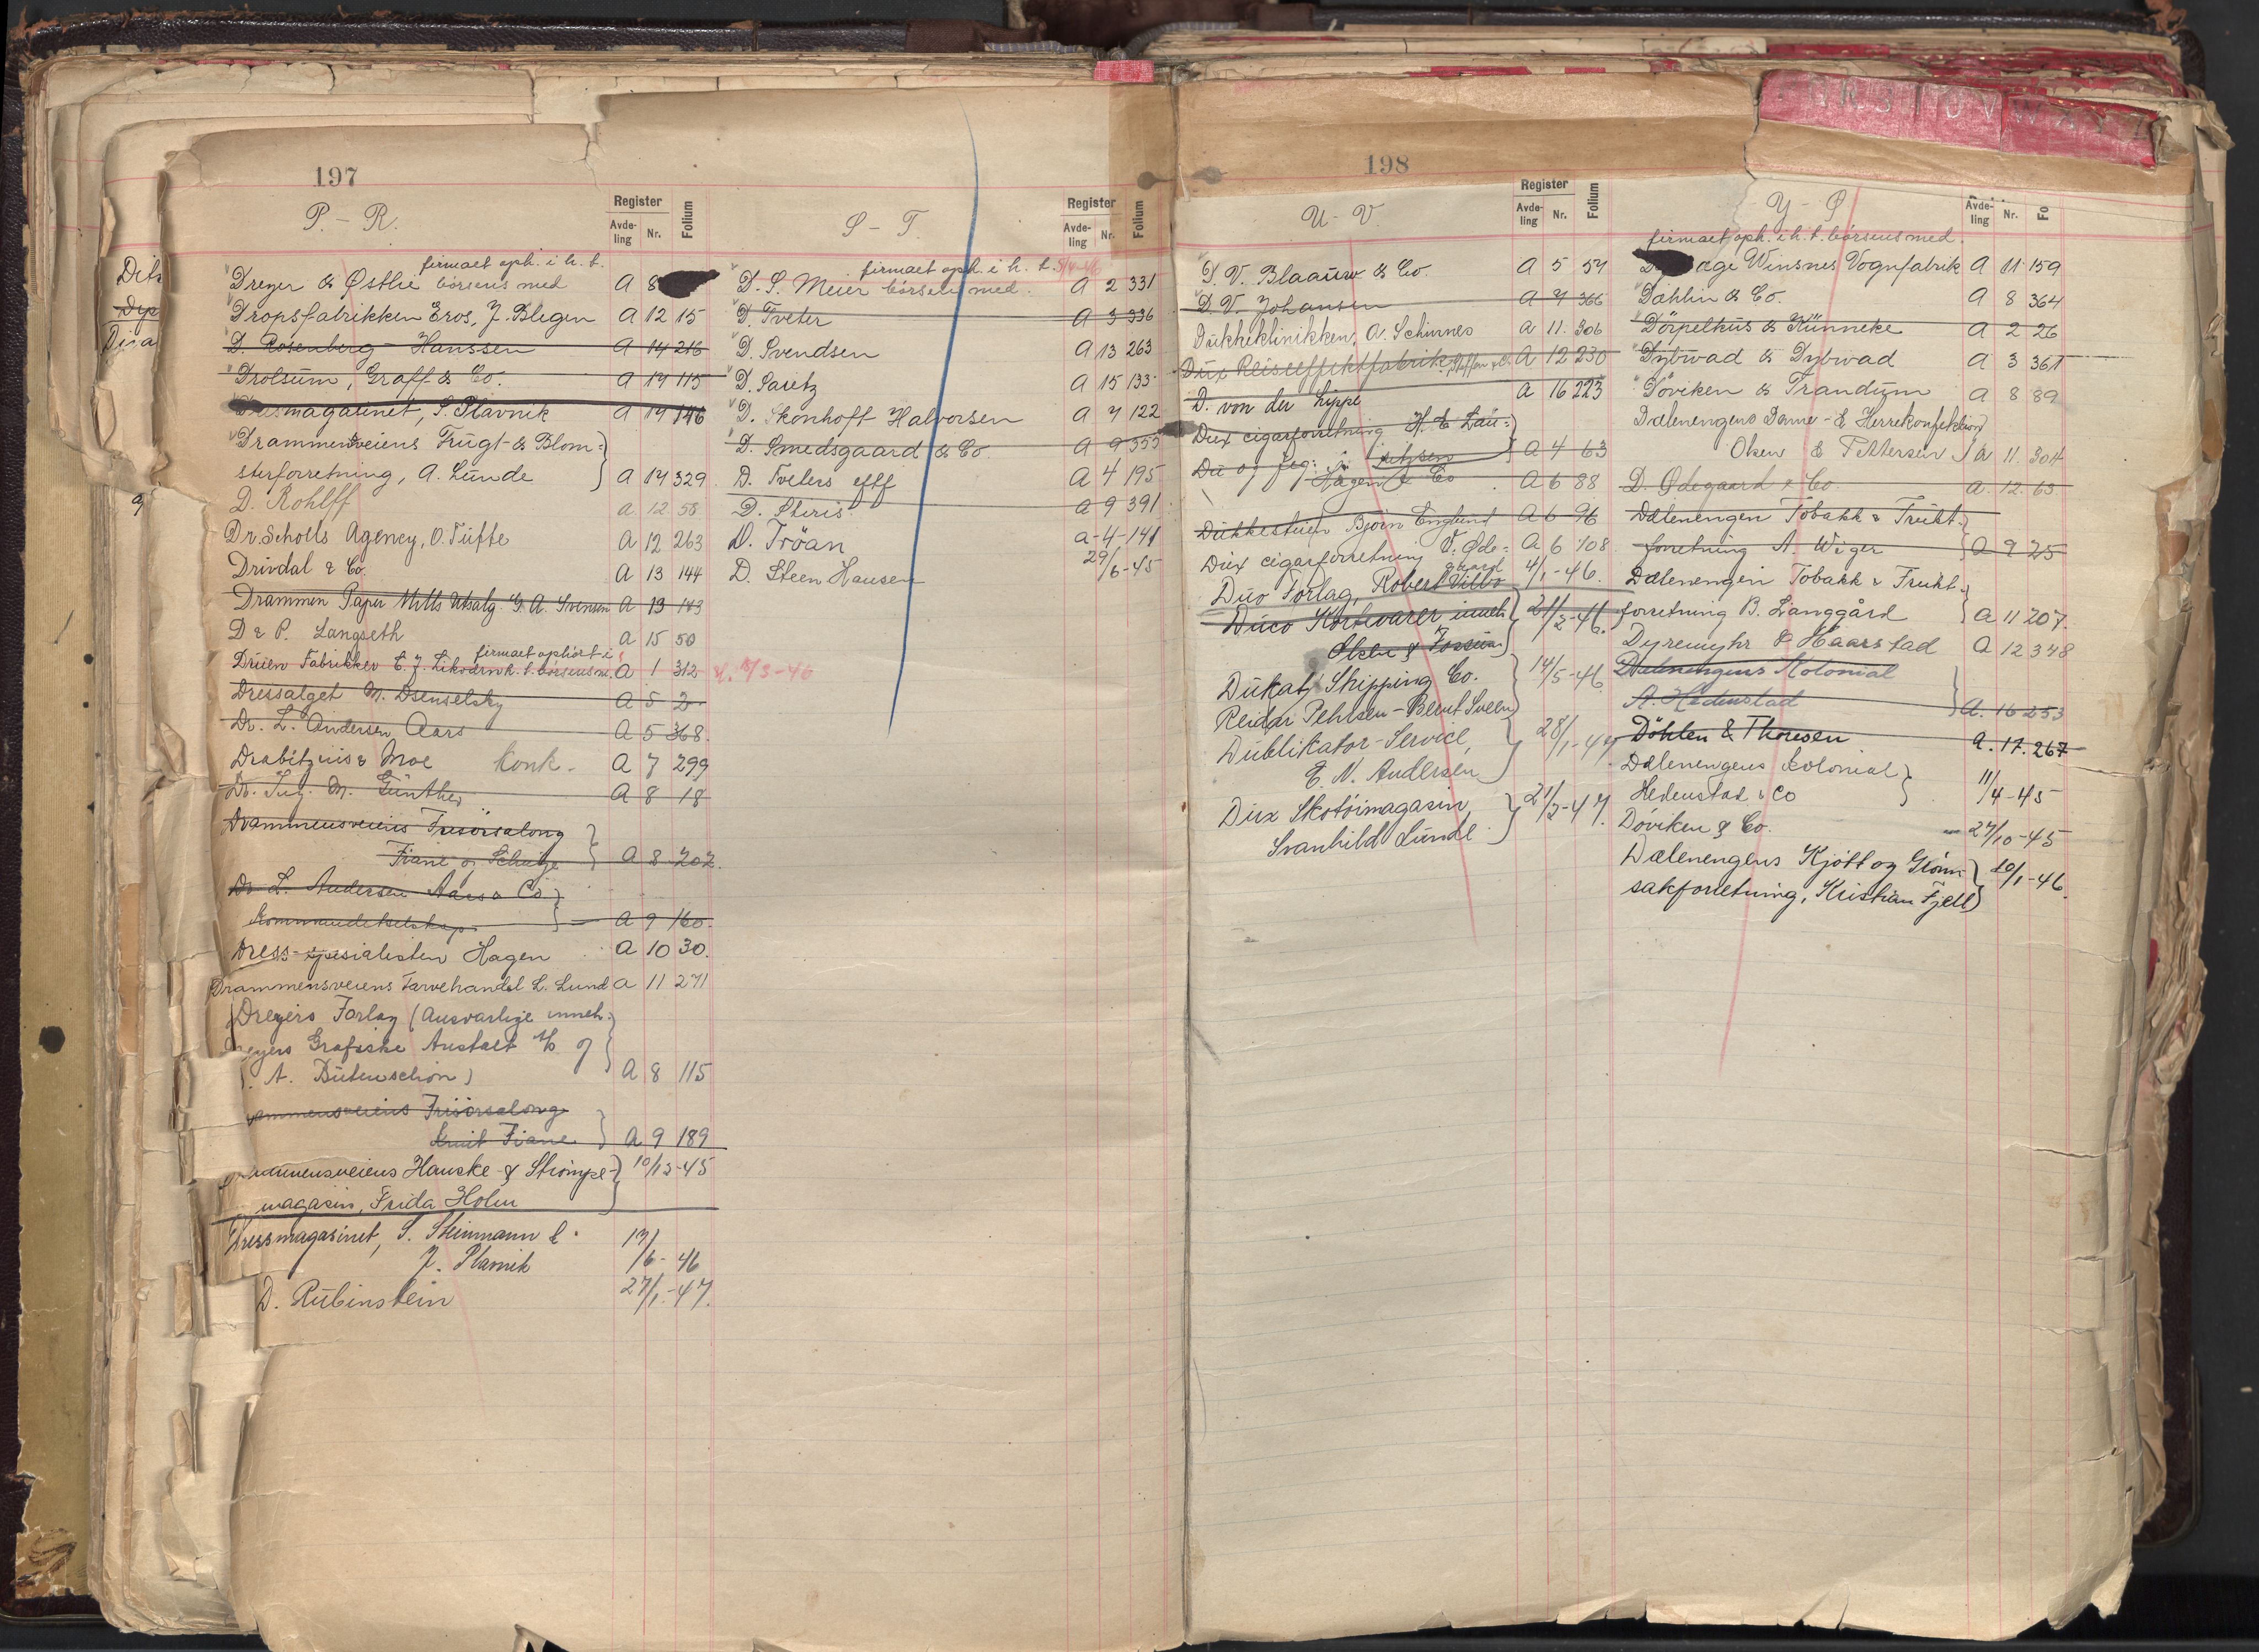 197
P. - R.
Register
Avde-
ling
Nr.
Folium
firmaet oph. i h. t.
Dreyer & Østlie børsens med A 8
Dropsfabrikken Eros, J. Blegen A 12 15
D. Rosenberg Hanssen A 14 216
Drolsum, Graff & Co. A 14 115
magasinet, S. Plavnik A 14 146
Drammensveiens Frugt- & Blom=
sterforretning, A. Lunde A 14 329
D. Rohlff a 12 58
Dr. Scholls Agency, O. Tufte A 12 263
Drivdal & Co. A 13 144
Drammen Paper Mills Utsalg. G. A. Svensen A 13 143
D & P. Langseth a 15 50
firmaet ophørt i
Druen Fabrikker E. J. h. t. børsens A 1 312 5/3-46
Dressalget M. A 5 2
Dr. L. Andersen Aars A 5 368.
Drabitzius & Moe Konk. A 7 299
Dr. Ing. M. Günther A 8 18
Drammensveiens Frisørsalong
Fiane og A 8 202
Dr. L. Andersen Aars & Co
Kommandittselskap A 9 160.
Dress-spesialisten Hagen A 10 30.
Drammensveiens Farvehandel L. Lund A 11 271
Dreyers Forlag (Ansvarlige inneh.
eyers Grafiske Anstalt A/S og
A. Butenschøn) A 8 115
ammensveiens Frisørsalong
Knut Fiane A 9 189
ammensveiens Hanske- & Strømpe- 10/12-45
magasin, Frida Holm
Dressmagasinet, S. Steinmann &
J. Plavnik 17/6-46
D. Rubinstein 27/1-47.
S - T.
Register
Avde-
ling
Nr.
Folium
firmaet oph. i h. t. 5/4-46
D. S. Meier børsens med. A 2 331
D. Tveter A 3 336
D. Svendsen A 13 263
D. Saretz A 15 133
D. Skonhoft Halvorsen A 7 122
D. Smedsgaard & Co. A 9 355
D. Tveters eftf A 4 195
D. Steiris A 9 391
D. Trøan a-4-141
D. Steen Hansen 29/6-45
198
U - V.
Register
Avde-
ling
Nr.
Folium
D. V. Blaauw & Co. A 5 54
D. V. Johansen A 7 366
Dukkeklinikken, A. Schirnes A 11. 306
Dux Reiseeffektfabrikk, A 12 230
D. von der Lippe A 16 223
Dux cigarforretning H. E. Lau=
ritzsen A 4 63
Du og Jeg: Hagen & Co A 6 88
Dukkestuen Bjørn Englund A 6 96
Dux cigarforretning V. Øde= A 6 108
gaard
Duo Forlag, Robert Villbo 4/1-46.
Duco Kortevarer inneh. 21/2-46.
Olsen & Fossum
Dukat Shipping Co. 14/5-46
Reidar Pehrsen - Bernt Sveen
Dublikator-Service, 28/1-47
E. N. Andersen
Dux Skotøimagasin, 21/2-47.
Svanhild Lunde
Y - Ø
Avde-
ling
Nr.
Fo
firmaet oph. i h. t. børsens med.
age Winsnes Vognfabrik A 11 159
Dahlin & Co. A 8 364
Dörpelkus & Künneke A 2 26
Dybwad & Dybwad A 3 361
Døviken & Trandum A 8 89
Dælenengens Dame- & Herrekonfektion
Olsen & Pettersen A 11 304
D. Ødegaard & Co. A. 12. 63
Dælenengen Tobakk & Frukt-
forretning A. Wiger A 9 25
Dælenengen Tobakk & Frukt-
forretning B. Langgård A 11 207.
Dyremyhr & Haarstad A 12 348
Dælenengens Kolonial
A. Hedenstad A. 16 253
Døhlen & Thoresen A. 17. 267
Dælenengens Kolonial
Hedenstad & Co 11/4-45
Døviken & Co. 27/10-45
Dælenengens Kjøtt og Grønn- 10/1-46.
sakforretning, Kristian Fjell